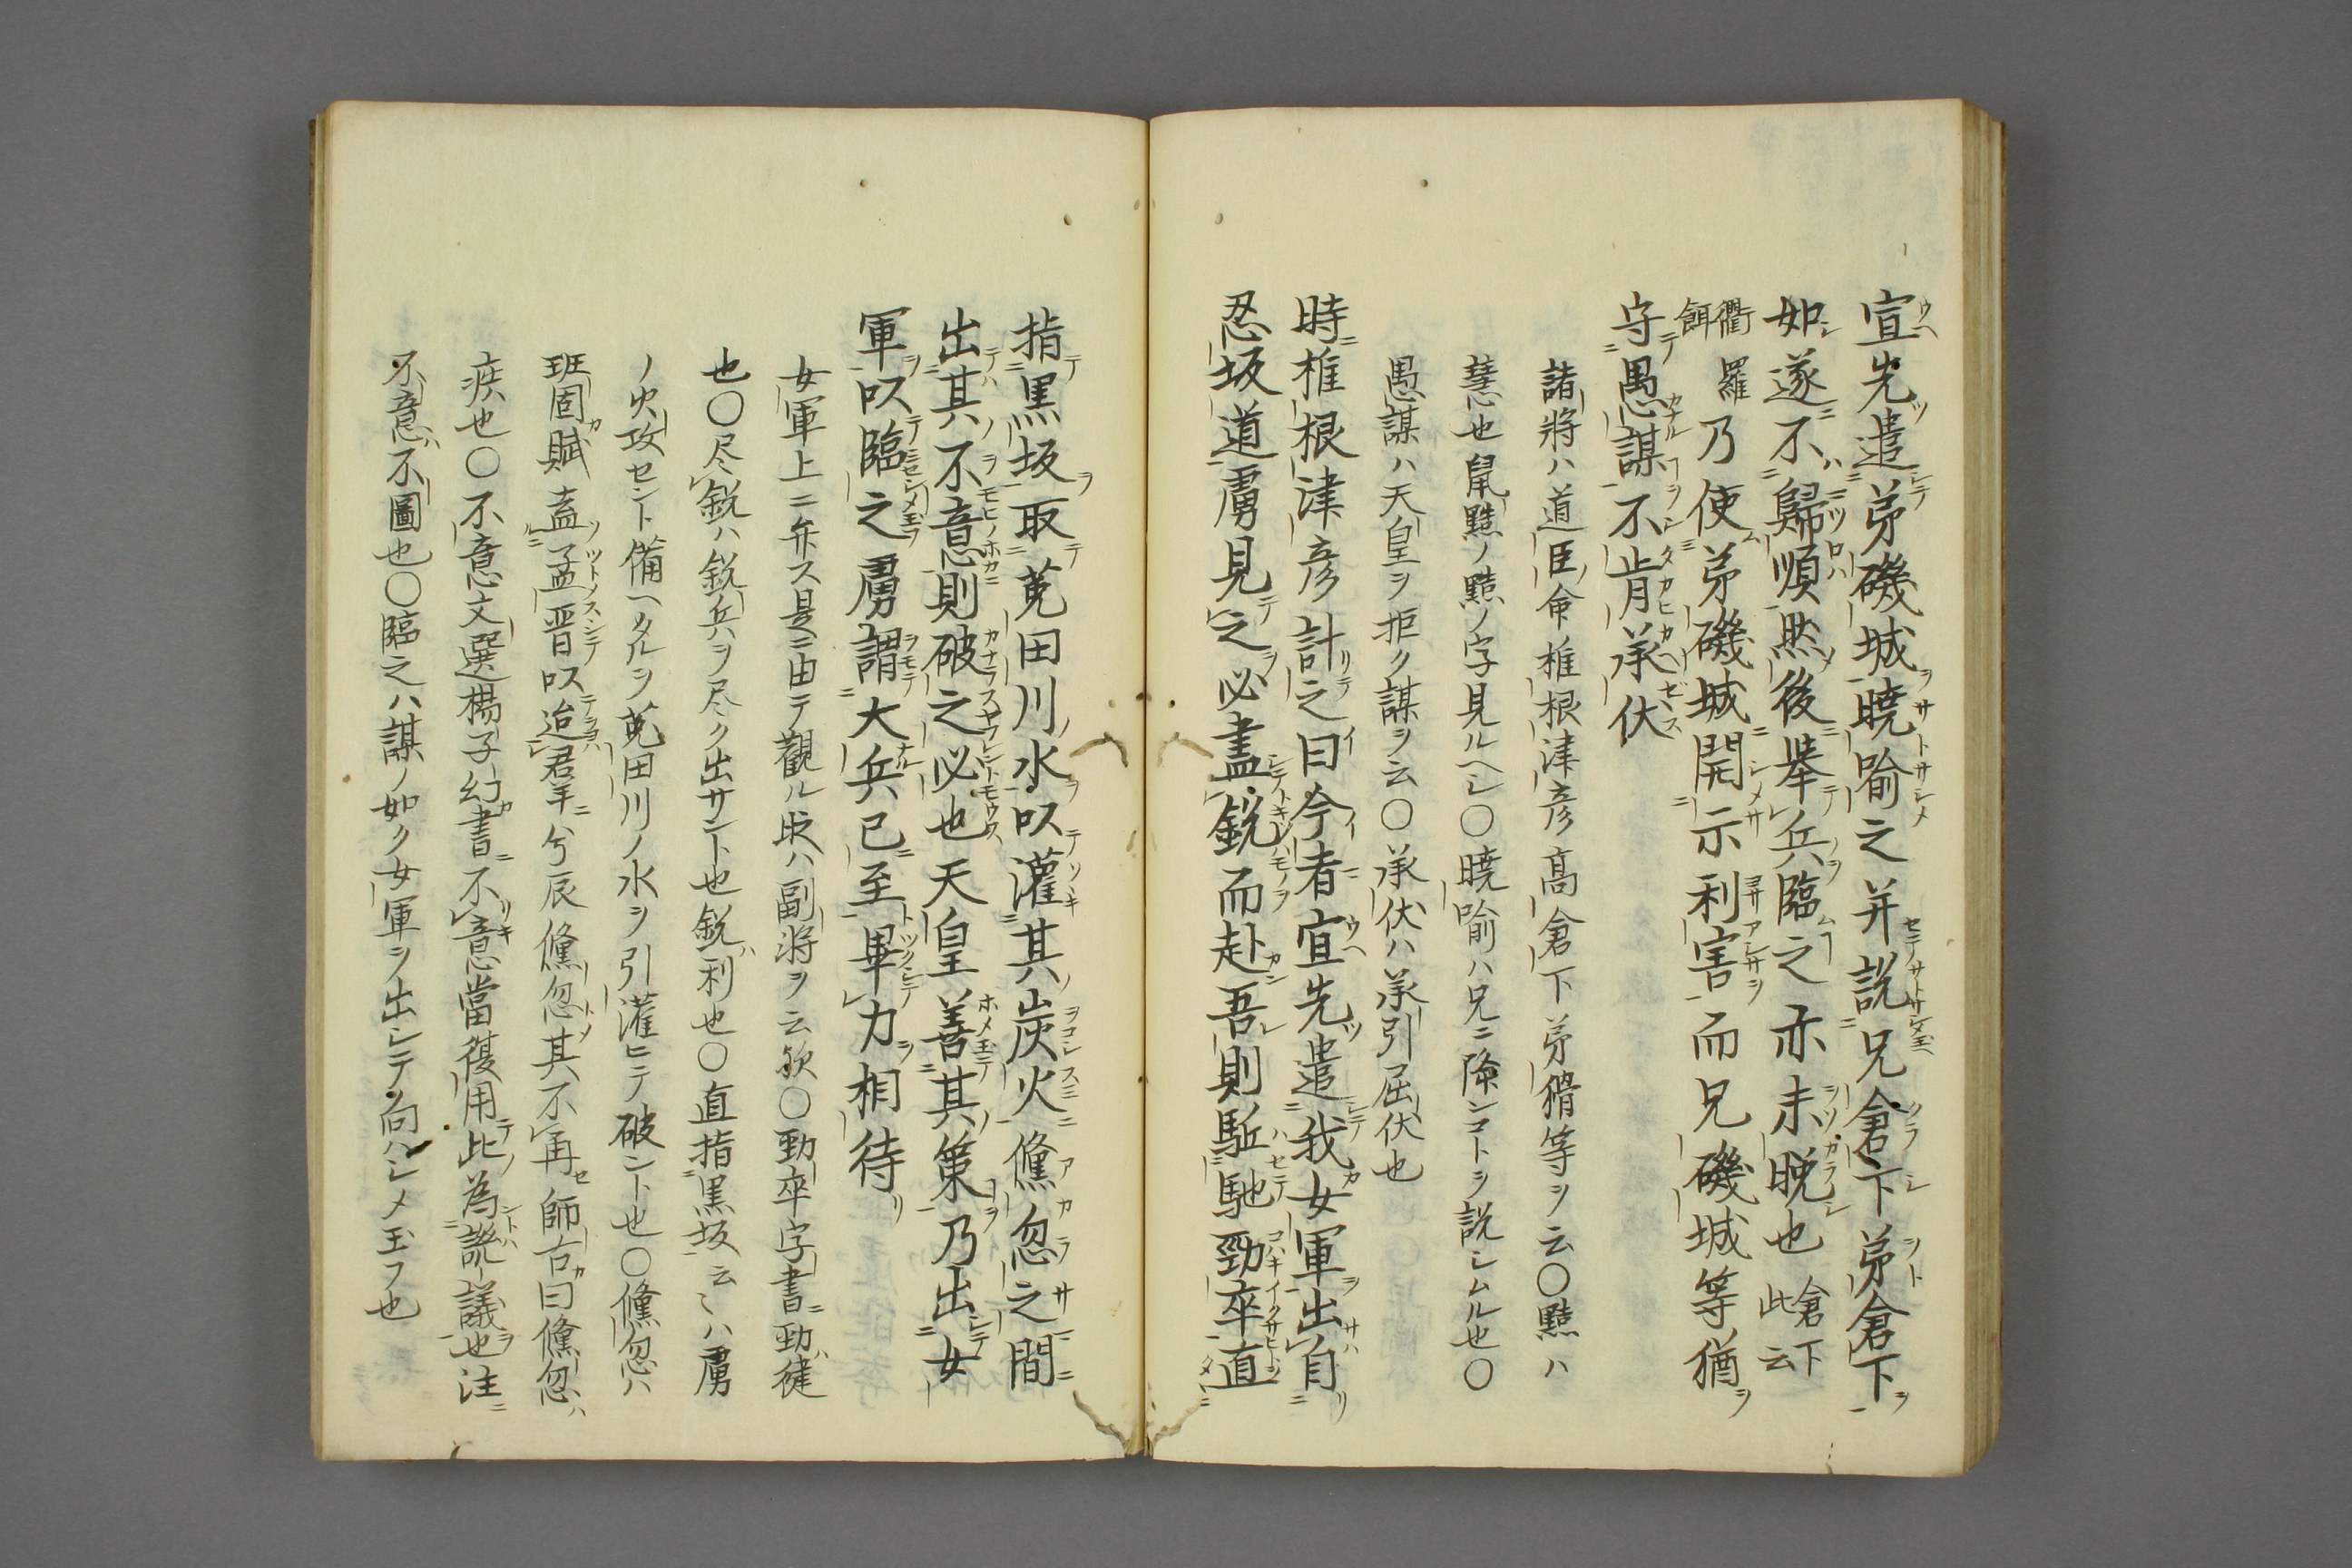 宜先遣弟磯城暁喩之并説兄倉下弟倉下
如遂不歸順然後舉兵臨之亦未晩也 倉下此云
衢羅餌 乃使弟磯城開示利害而兄磯城等猶
守愚謀不肯承伏
諸將ハ道臣命椎根津彦高倉下弟猾等ヲ云〇黠ハ
慧也鼠黠ノ黠ノ字見ルヘシ〇暁喩ハ兄ニ降ンコトヲ説シムル也〇
愚謀ハ天皇ヲ拒ク謀ヲ云〇承伏ハ承引屈伏也
時椎根津彦計之曰今者宜先遣我女軍出自
忍坂道虜見之必盡鋭而赴吾則駈馳勁卒直
指黒坂取菟田川水以灌其炭火儵忽之間
出其不意則破之必也天皇善其策乃出女
軍以臨之虜謂大兵已至畢力相待
女軍上ニ弁ス是ニ由テ觀ル时ハ副將ヲ云歟〇勁卒字書ニ勁ハ健
也〇尽鋭ハ鋭兵ヲ尽ク出サント也鋭ハ利也〇直指黒坂云〻ハ虜
ノ火攻セント備ヘタルヲ菟田川ノ水ヲ引灌ヒテ破ント也〇儵忽ハ
班固賦盍孟晋以迨君羊兮辰儵忽其不再師古曰儵忽ハ
疾也〇不意文選楊子幻書不意當復用此為譏議也注ニ
不意ハ不圖也〇臨之ハ謀ノ如ク女軍ヲ出シテ向ハシメ玉フ也